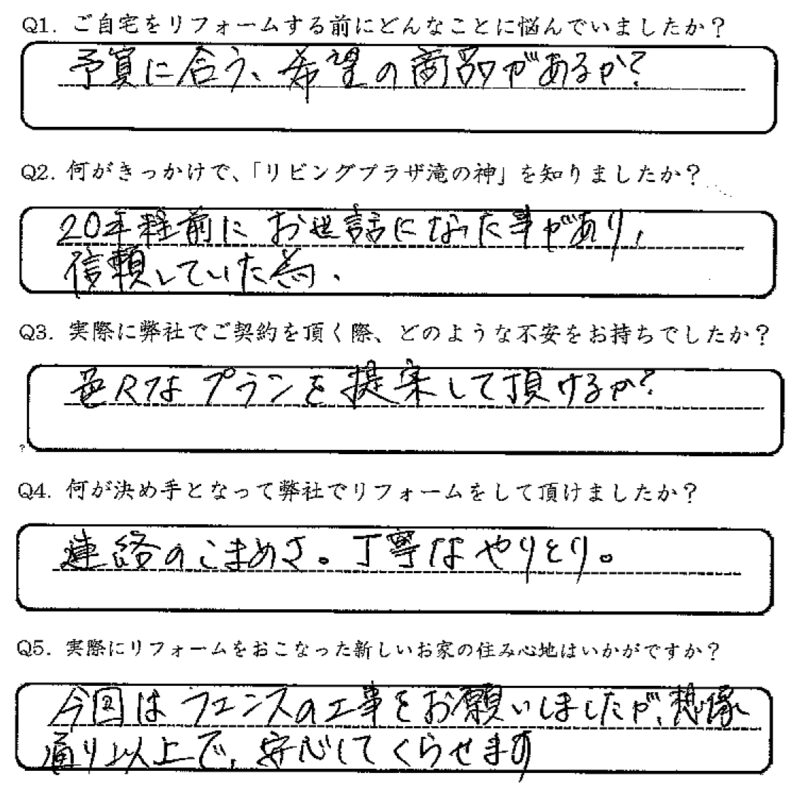 Q1. ご自宅をリフォームする前にどんなことに悩んでいましたか？
予算に合う、希望の商品があるか？
Q2. 何がきっかけで、「リビングプラザ滝の神」を知りましたか？
20年程前にお世話になった事があり、
信頼していた為、
Q3. 実際に弊社でご契約を頂く際、どのような不安をお持ちでしたか？
色々なプランを提案して頂けるか？
Q4. 何が決め手となって弊社でリフォームをして頂けましたか？
連絡のこまめさ。丁寧なやりとり。
Q5. 実際にリフォームをおこなった新しいお家の住み心地はいかがですか？
今回はフェンスの工事をお願いしましたが、想像
通り以上で、安心してくらせます